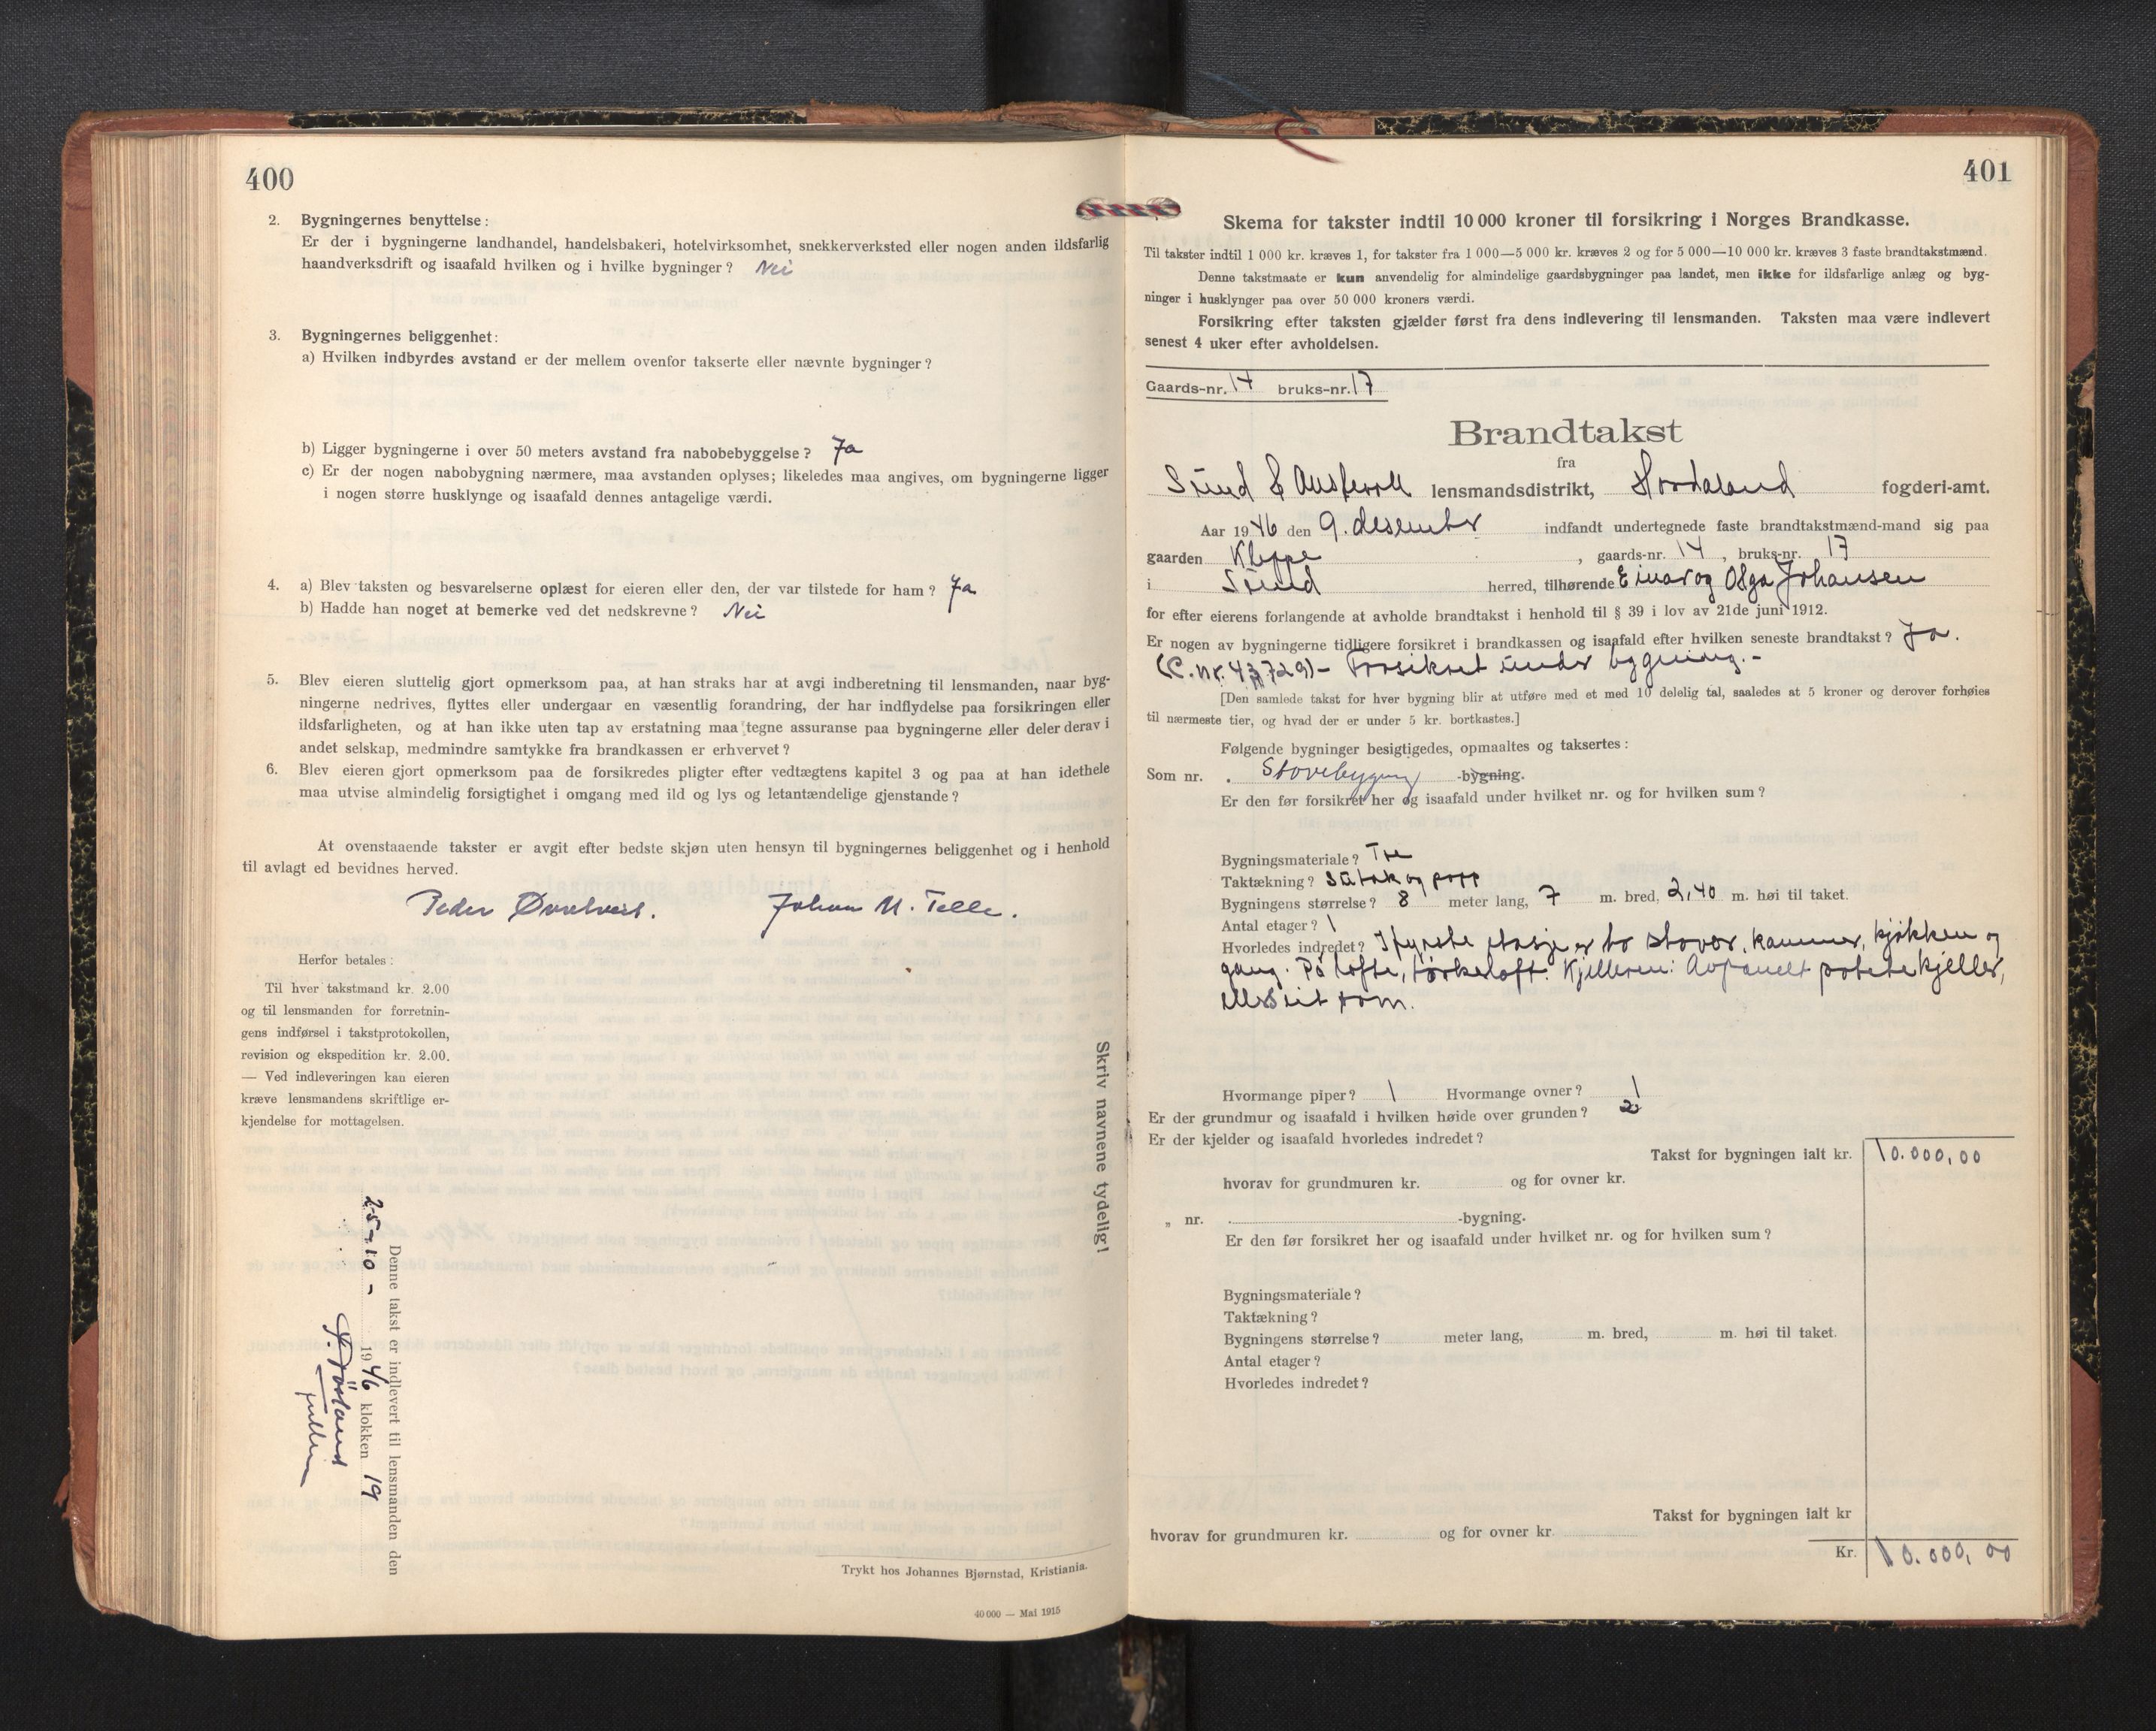 400
2. Bygningernes benyttelse:
Er der i bygningerne landhandel, handelsbakeri, hotelvirksomhet, snekkerverksted eller nogen anden ildsfarlig
haandverksdrift og isaafald hvilken og i hvilke bygninger? Nei
3. Bygningernes beliggenhet:
a) Hvilken indbyrdes avstand er der mellem ovenfor takserte eller nævnte bygninger?
b) Ligger bygningerne i over 50 meters avstand fra nabobebyggelse? Ja
c) Er der nogen nabobygning nærmere, maa avstanden oplyses; likeledes maa angives, om bygningerne ligger
i nogen større husklynge og isaafald dennes antagelige værdi.
4. a) Blev taksten og besvarelserne oplæst for eieren eller den, der var tilstede for ham? Ja
b) Hadde han noget at bemerke ved det nedskrevne? Nei
5. Blev eieren sluttelig gjort opmerksom paa, at han straks har at avgi indberetning til lensmanden, naar byg-
ningerne nedrives, flyttes eller undergaar en væsentlig forandring, der har indflydelse paa forsikringen eller
ildsfarligheten, og at han ikke uten tap av erstatning maa tegne assuranse paa bygningerne eller deler derav i
andet selskap, medmindre samtykke fra brandkassen er erhvervet?
6. Blev eieren gjort opmerksom paa de forsikredes pligter efter vedtægtens kapitel 3 og paa at han idethele
maa utvise almindelig forsigtighet i omgang med ild og lys og letantændelige gjenstande?
At ovenstaaende takster er avgit efter bedste skjøn uten hensyn til bygningernes beliggenhet og i henhold
til avlagt ed bevidnes herved.
Peder Øvretveit. Johan M. Telle.
Herfor betales:
Til hver takstmand kr. 2.00
og til lensmanden for forretnin-
gens indførsel i takstprotokollen,
revision og ekspedition kr. 2.00.
— Ved indleveringen kan eieren
kræve lensmandens skriftlige er-
kjendelse for mottagelsen.
Skriv navnene tydelig!
Denne takst er indlevert til lensmanden den
25-10- 1946 klokken 19
Trykt hos Johannes Bjørnstad, Kristiania.
40 000 — Mai 1915
401
Skema for takster indtil 10 000 kroner til forsikring i Norges Brandkasse.
Til takster indtil 1 000 kr. kræves 1, for takster fra 1 000—5 000 kr. kræves 2 og for 5 000—10 000 kr. kræves 3 faste brandtakstmænd.
Denne takstmaate er kun anvendelig for almindelige gaardsbygninger paa landet, men ikke for ildsfarlige anlæg og byg-
ninger i husklynger paa over 50 000 kroners værdi.
Forsikring efter taksten gjælder først fra dens indlevering til lensmanden. Taksten maa være indlevert
senest 4 uker efter avholdelsen.
Gaards-nr. 14 bruks-nr. 17
Brandtakst
fra
Sund & Austevoll lensmandsdistrikt, Hordaland fogderi-amt.
Aar 1946 den 9. desember indfandt undertegnede faste brandtakstmænd-mand sig paa
gaarden Kleppe, gaards-nr. 14, bruks-nr. 17
i Sund herred, tilhørende Einar og Olga Johansen
for efter eierens forlangende at avholde brandtakst i henhold til § 39 i lov av 21de juni 1912.
Er nogen av bygningerne tidligere forsikret i brandkassen og isaafald efter hvilken seneste brandtakst? Ja.
(C. nr. 43729) - Forsikret under bygning.-
[Den samlede takst for hver bygning blir at utføre med et med 10 delelig tal, saaledes at 5 kroner og derover forhøies
til nærmeste tier, og hvad der er under 5 kr. bortkastes.]
Følgende bygninger besigtigedes, opmaaltes og taksertes:
Som nr. . Stovebygning -bygning.
Er den før forsikret her og isaafald under hvilket nr. og for hvilken sum?
Bygningsmateriale? Tre
Taktækning? Sutak og papp
Bygningens størrelse? 8 meter lang, 7 m. bred, 2,40 m. høi til taket.
Antal etager? 1
Hvorledes indredet? I fyrste etasje er to stover, kammer, kjøkken og
gang. På loftet, tørkeloft. Kjelleren: Avpanelt potetekjeller,
ellers eit rom.
Hvormange piper? 1 Hvormange ovner? 2
Er der grundmur og isaafald i hvilken høide over grunden? 1
Er der kjelder og isaafald hvorledes indredet?
Takst for bygningen ialt kr. 10.000,00
hvorav for grundmuren kr. og for ovner kr.
„ nr. . -bygning.
Er den før forsikret her og isaafald under hvilket nr. og for hvilken sum?
Bygningsmateriale?
Taktækning?
Bygningens størrelse? meter lang, m. bred, m. høi til taket.
Antal etager?
Hvorledes indredet?
Takst for bygningen ialt kr
hvorav for grundmuren kr. og for ovner kr.
Kr. 10.000,00